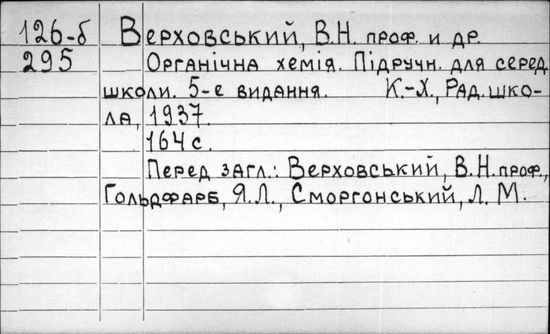 126-б Верховський, В.Н. проф. и др.
295 Органічна хемія. Підручн. для серед.
школи. 5-е видання. К.-Х., Рад. шко-
ла, 1937.
164 с.
Перед загл.: Верховський, В.Н. проф.,
Гольдфарб, Я.Л., Сморгонський, Л.М.